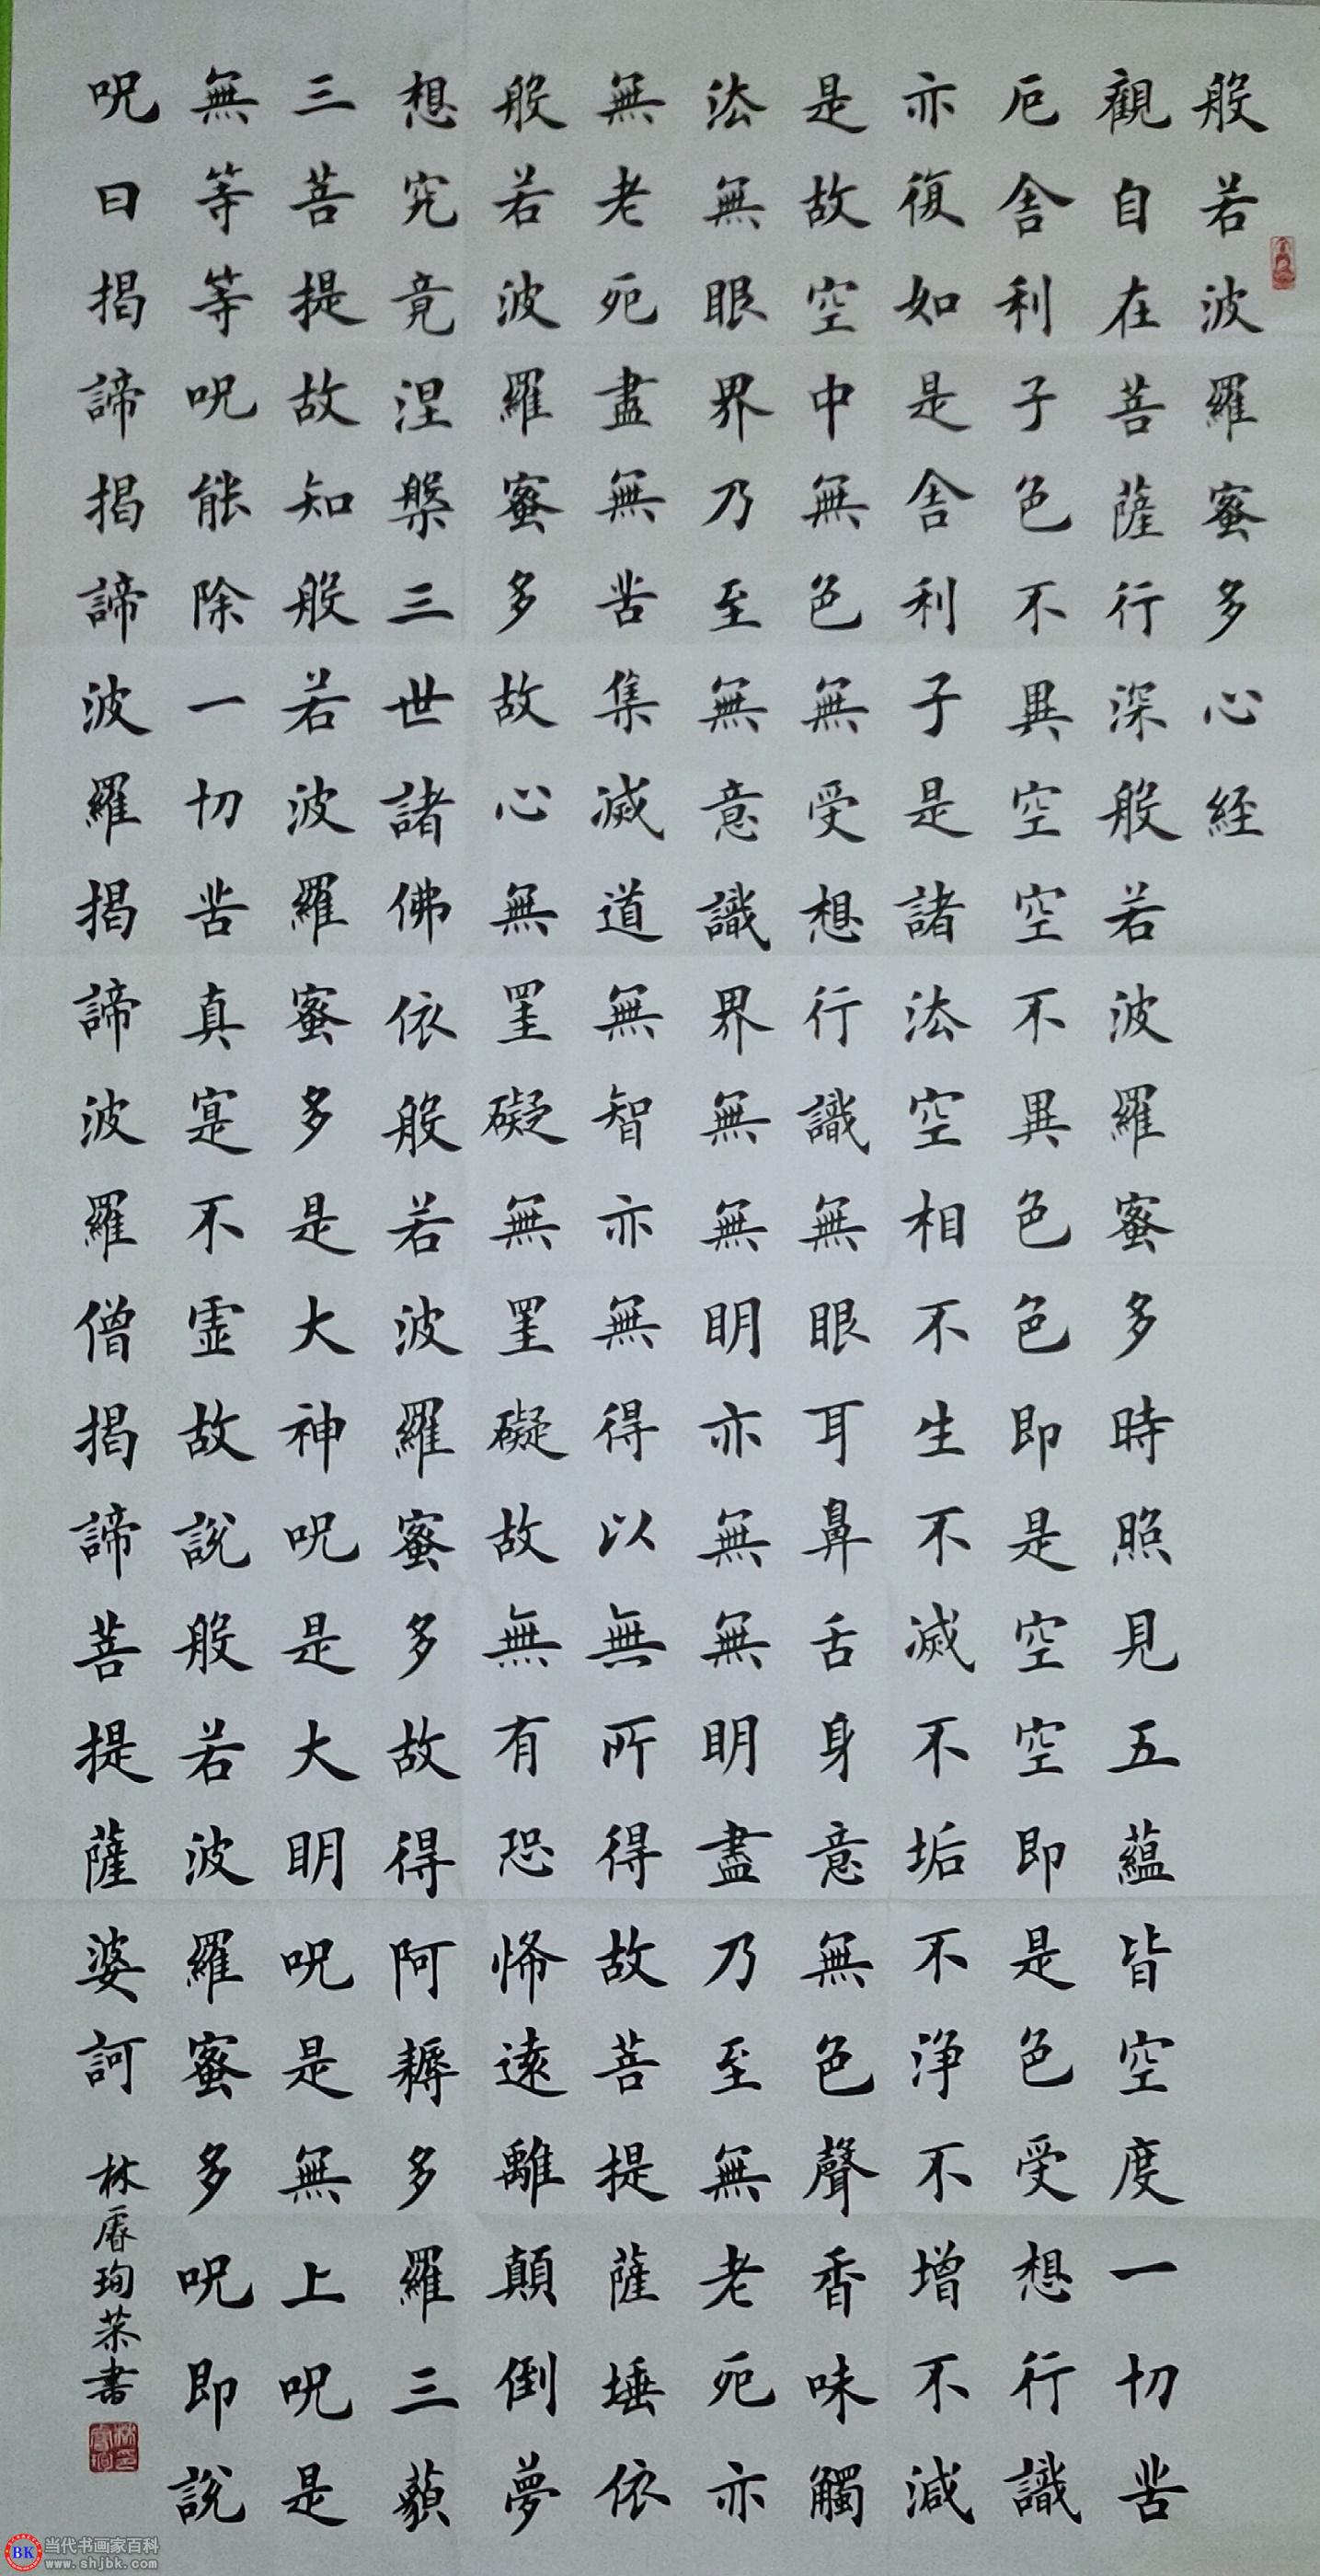 般若波羅蜜多心経
觀自在菩薩行深般若波羅蜜多時照見五蘊皆空度一切苦
厄舎利子色不異空空不異色色即是空空即是色受想行識
亦復如是舎利子是諸法空相不生不滅不垢不淨不增不減
是故空中無色無受想行識無眼耳鼻舌身意無色聲香味觸
法無眼界乃至無意識界無無明亦無無明盡乃至無老死亦
無老死盡無苦集滅道無智亦無得以無所得故菩提薩埵依
般若波羅蜜多故心無罣礙無罣礙故無有恐怖遠離顛倒夢
想究竟涅槃三世諸佛依般若波羅蜜多故得阿耨多羅三藐
三菩提故知般若波羅蜜多是大神呪是大明呪是無上呪是
無等等呪能除一切苦真寔不虛故說般若波羅蜜多呪即說
呪曰揭諦揭諦波羅揭諦波羅僧揭諦菩提薩婆訶
林 書
BK 当代书画家百科
www.shjbk.com